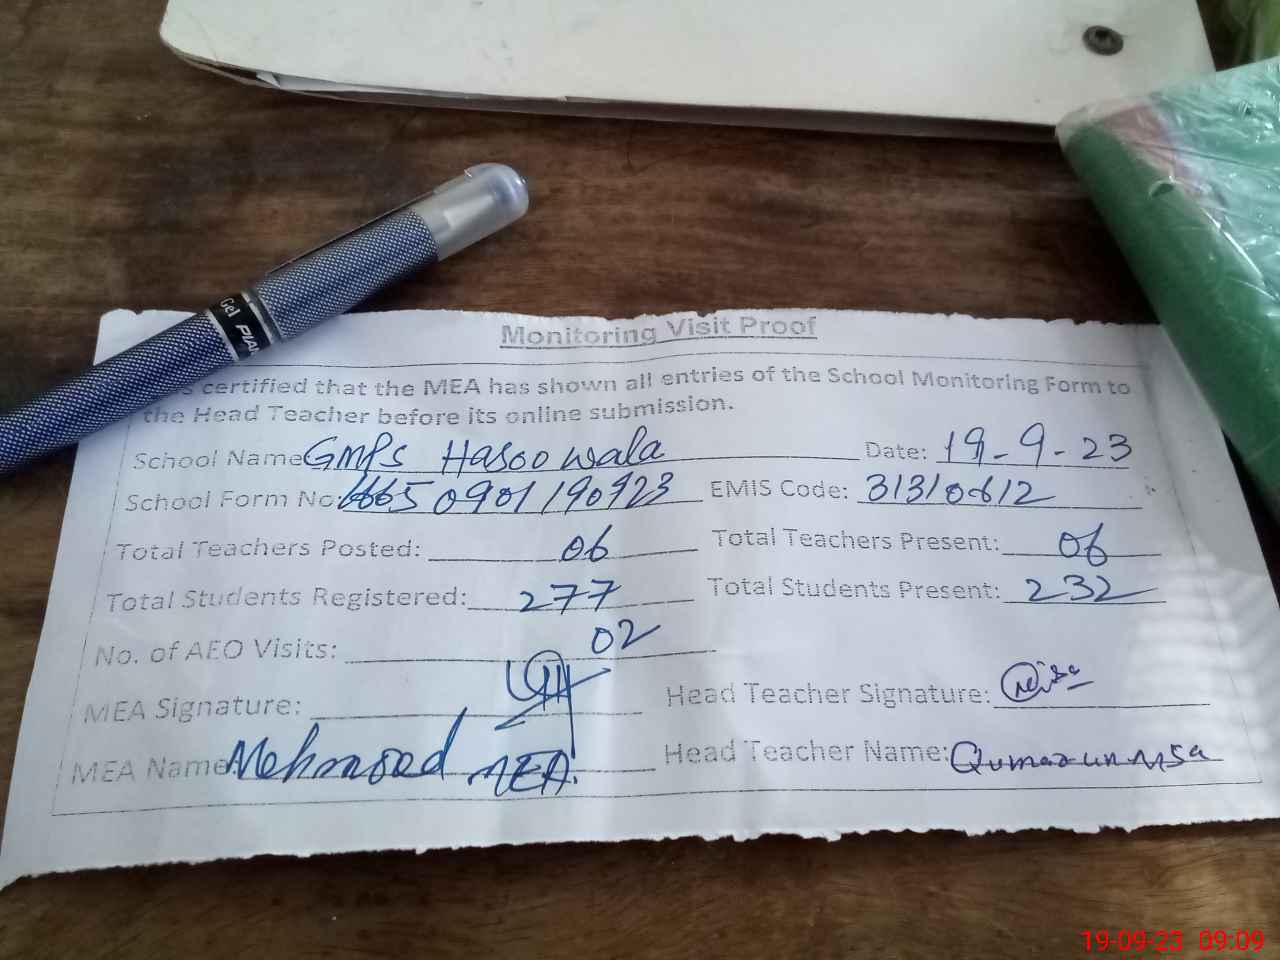 Gel PIANO
Monitoring Visit Proof
certified that the MEA has shown all entries of the School Monitoring Form to
the Head Teacher before its online submission.
School Name GMPS Hasoowala Date: 19-9-23
School Form No: 66650901190923 EMIS Code: 31310612
Total Teachers Posted: 06 Total Teachers Present: 06
Total Students Registered: 277 Total Students Present: 232
No. of AEO Visits: 02
MEA Signature: Head Teacher Signature:
MEA Name: Mehmood MEA. Head Teacher Name: Qumar un nisa
19-09-23 09:09